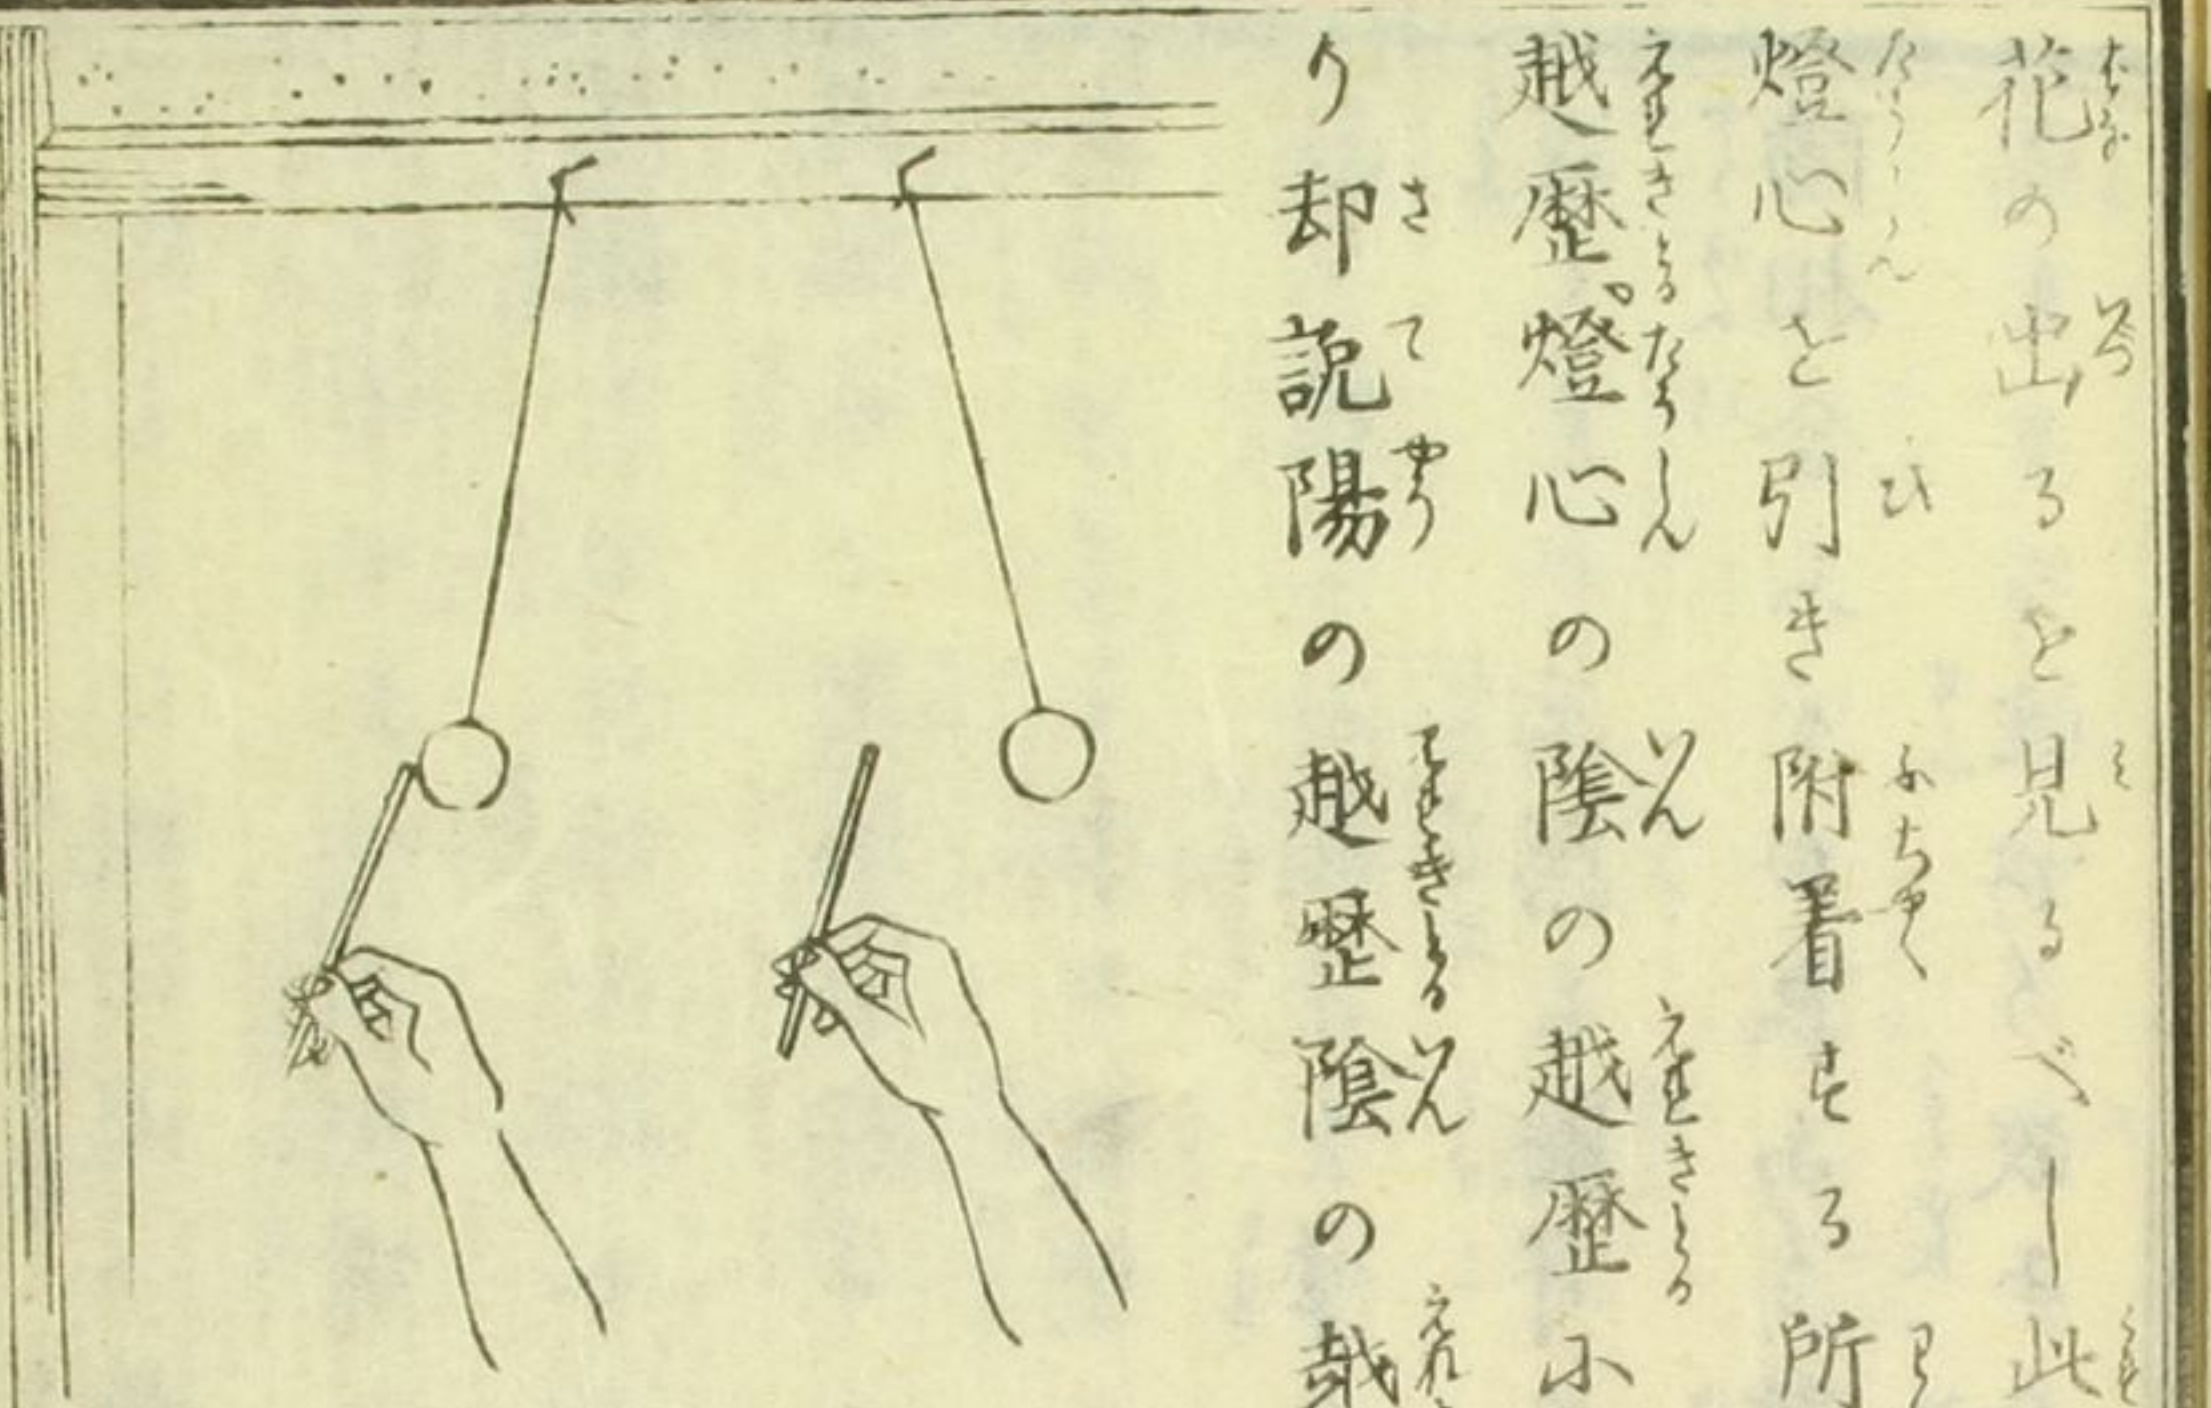 花の出るを見るべし此
燈心を引き附着する所
越歴。燈心の陰の越歴に
り却説陽の越歴陰の越